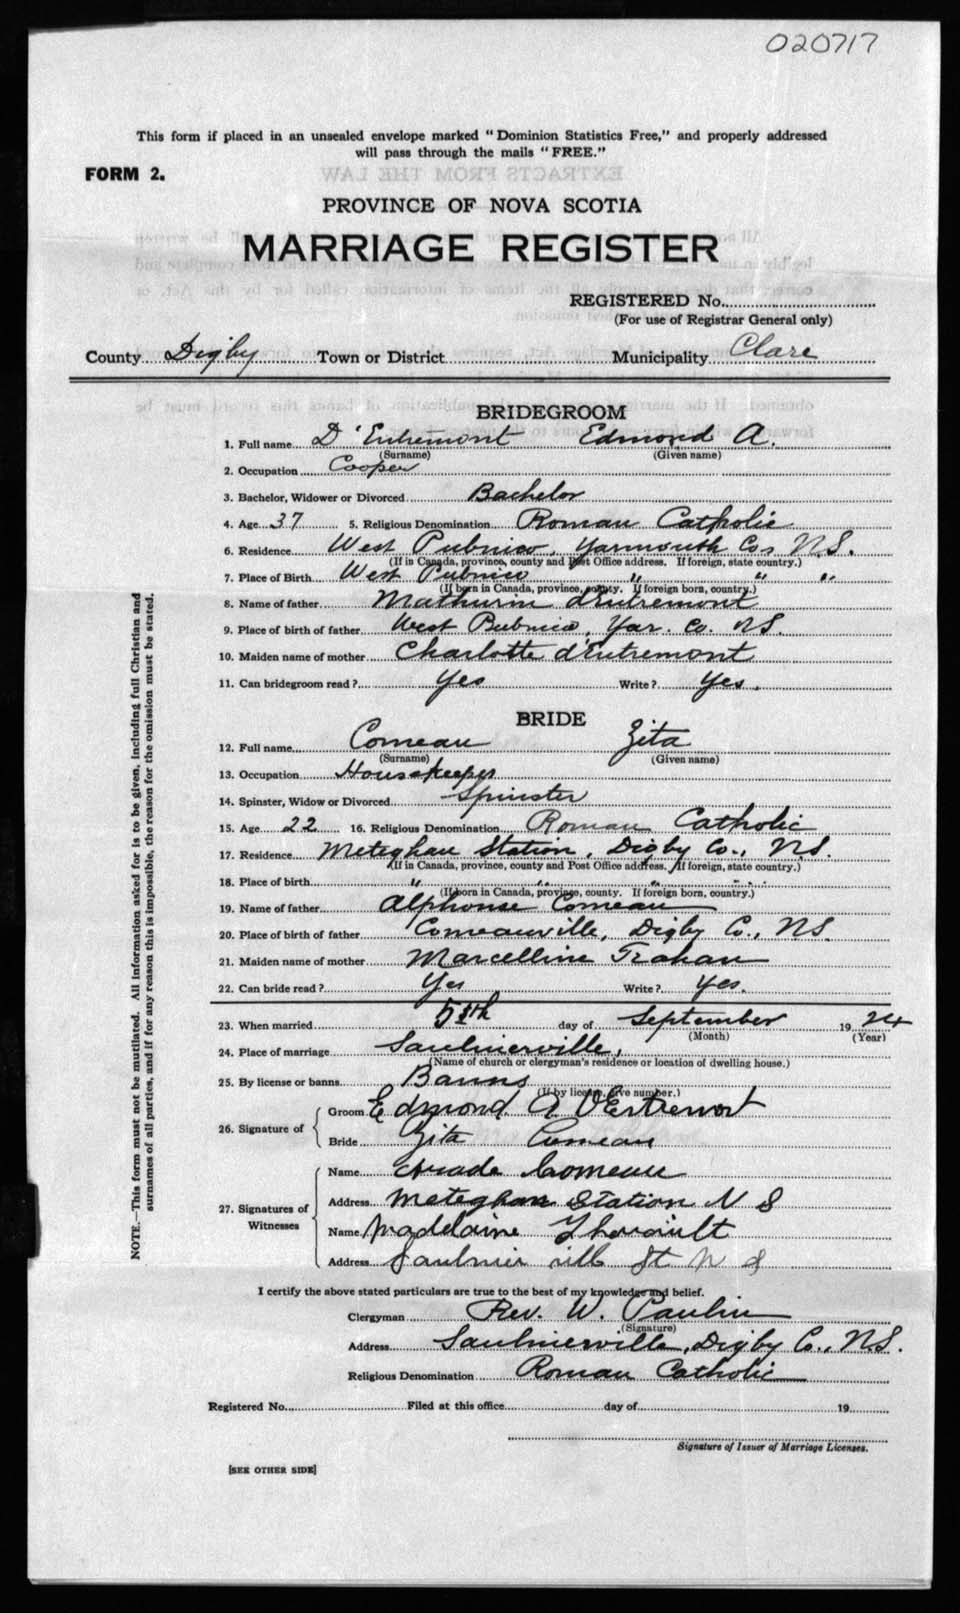 020717
This form if placed in an unsealed envelope marked "Dominion Statistics Free," and properly addressed
will pass through the mails "FREE."
FORM 2.
EXTRACTS FROM THE LAW
PROVINCE OF NOVA SCOTIA
MARRIAGE REGISTER
REGISTERED No.
(For use of Registrar General only)
County Digby Town or District Municipality Clare
BRIDEGROOM
1. Full name D'Entremont Edmond A.
(Surname) (Given name)
2. Occupation Cooper
3. Bachelor, Widower or Divorced Bachelor
4. Age 37 5. Religious Denomination Roman Catholic
6. Residence West Pubnico, Yarmouth Co, N.S.
(If in Canada, province, county and Post Office address. If foreign, state country.)
7. Place of Birth West Pubnico " " "
(If born in Canada, province, county. If foreign born, country.)
8. Name of father Mathurin d'Entremont
9. Place of birth of father West Pubnico, Yar. Co. N.S.
10. Maiden name of mother Charlotte d'Entremont
11. Can bridegroom read? Yes Write? Yes.
BRIDE
12. Full name Comeau Zita
(Surname) (Given name)
13. Occupation Housekeeper
14. Spinster, Widow or Divorced Spinster
15. Age 22 16. Religious Denomination Roman Catholic
17. Residence Meteghan Station, Digby Co., N.S.
(If in Canada, province, county and Post Office address. If foreign, state country.)
18. Place of birth " " " "
(If born in Canada, province, county. If foreign born, country.)
19. Name of father Alphonse Comeau
20. Place of birth of father Comeauville, Digby Co., N.S.
21. Maiden name of mother Marcelline Trahan
22. Can bride read? Yes Write? Yes.
23. When married 5th day of September 1924
(Month) (Year)
24. Place of marriage Saulnierville,
(Name of church or clergyman's residence or location of dwelling house.)
25. By license or banns Banns
(If by license, give number.)
26. Signature of Groom Edmond A D'Entremont
Bride Zita Comeau
27. Signatures of Witnesses Name Comeau
Address Meteghan Station N S
Name Madelaine
Address Saulnier ville St N S
I certify the above stated particulars are true to the best of my knowledge and belief.
Clergyman Rev. W. Paulin
(Signature)
Address Saulnierville, Digby Co., N.S.
Religious Denomination Roman Catholic
Registered No. Filed at this office day of 19
Signature of Issuer of Marriage Licenses.
[SEE OTHER SIDE]
NOTE.—This form must not be mutilated. All information asked for is to be given, including full Christian and
surnames of all parties, and if for any reason this is impossible, the reason for the omission must be stated.